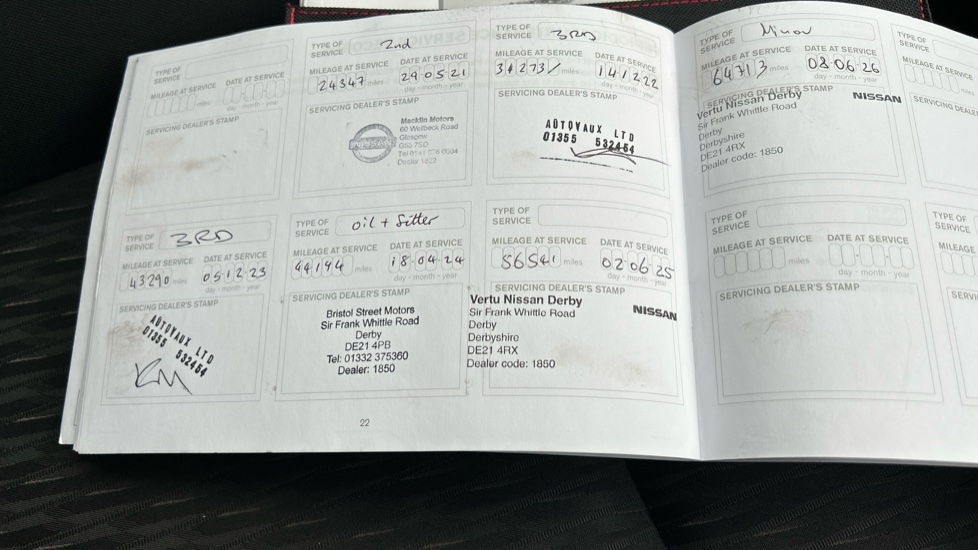 TYPE OF
SERVICE
MILEAGE AT SERVICE DATE AT SERVICE
miles day - month - year
SERVICING DEALER'S STAMP
TYPE OF
SERVICE 2nd
MILEAGE AT SERVICE DATE AT SERVICE
24347 miles 29 05 21
day - month - year
SERVICING DEALER'S STAMP
NISSAN
Macklin Motors
60 Welbeck Road
Glasgow
TYPE OF
SERVICE 3RD
MILEAGE AT SERVICE DATE AT SERVICE
34273/ miles 14 12 22
day - month - year
SERVICING DEALER'S STAMP
AUTOVAUX LTD
01355 532454
TYPE OF
SERVICE 3RD
MILEAGE AT SERVICE DATE AT SERVICE
43290 miles 05 12 23
day - month - year
SERVICING DEALER'S STAMP
AUTOVAUX LTD
01355 532454
TYPE OF
SERVICE oil + filter
MILEAGE AT SERVICE DATE AT SERVICE
44194 miles 18 04 24
day - month - year
SERVICING DEALER'S STAMP
Bristol Street Motors
Sir Frank Whittle Road
Derby
DE21 4PB
Tel: 01332 375360
Dealer: 1850
TYPE OF
SERVICE
MILEAGE AT SERVICE DATE AT SERVICE
56541 miles 02 06 25
day - month - year
SERVICING DEALER'S STAMP
Vertu Nissan Derby NISSAN
Sir Frank Whittle Road
Derby
Derbyshire
DE21 4RX
Dealer code: 1850
22
TYPE OF
SERVICE Minor
MILEAGE AT SERVICE DATE AT SERVICE
64713 miles 08 06 26
day - month - year
SERVICING DEALER'S STAMP
Vertu Nissan Derby NISSAN
Sir Frank Whittle Road
Derby
Derbyshire
DE21 4RX
Dealer code: 1850
TYPE OF
SERVICE
MILEAGE AT SERVICE DATE AT SERVICE
miles day - month - year
SERVICING DEALER'S STAMP
TYPE OF
SERVICE
MILEAGE AT
SERVICING DEALE
TYPE OF
SERVICE
MILEAGE
SERVI